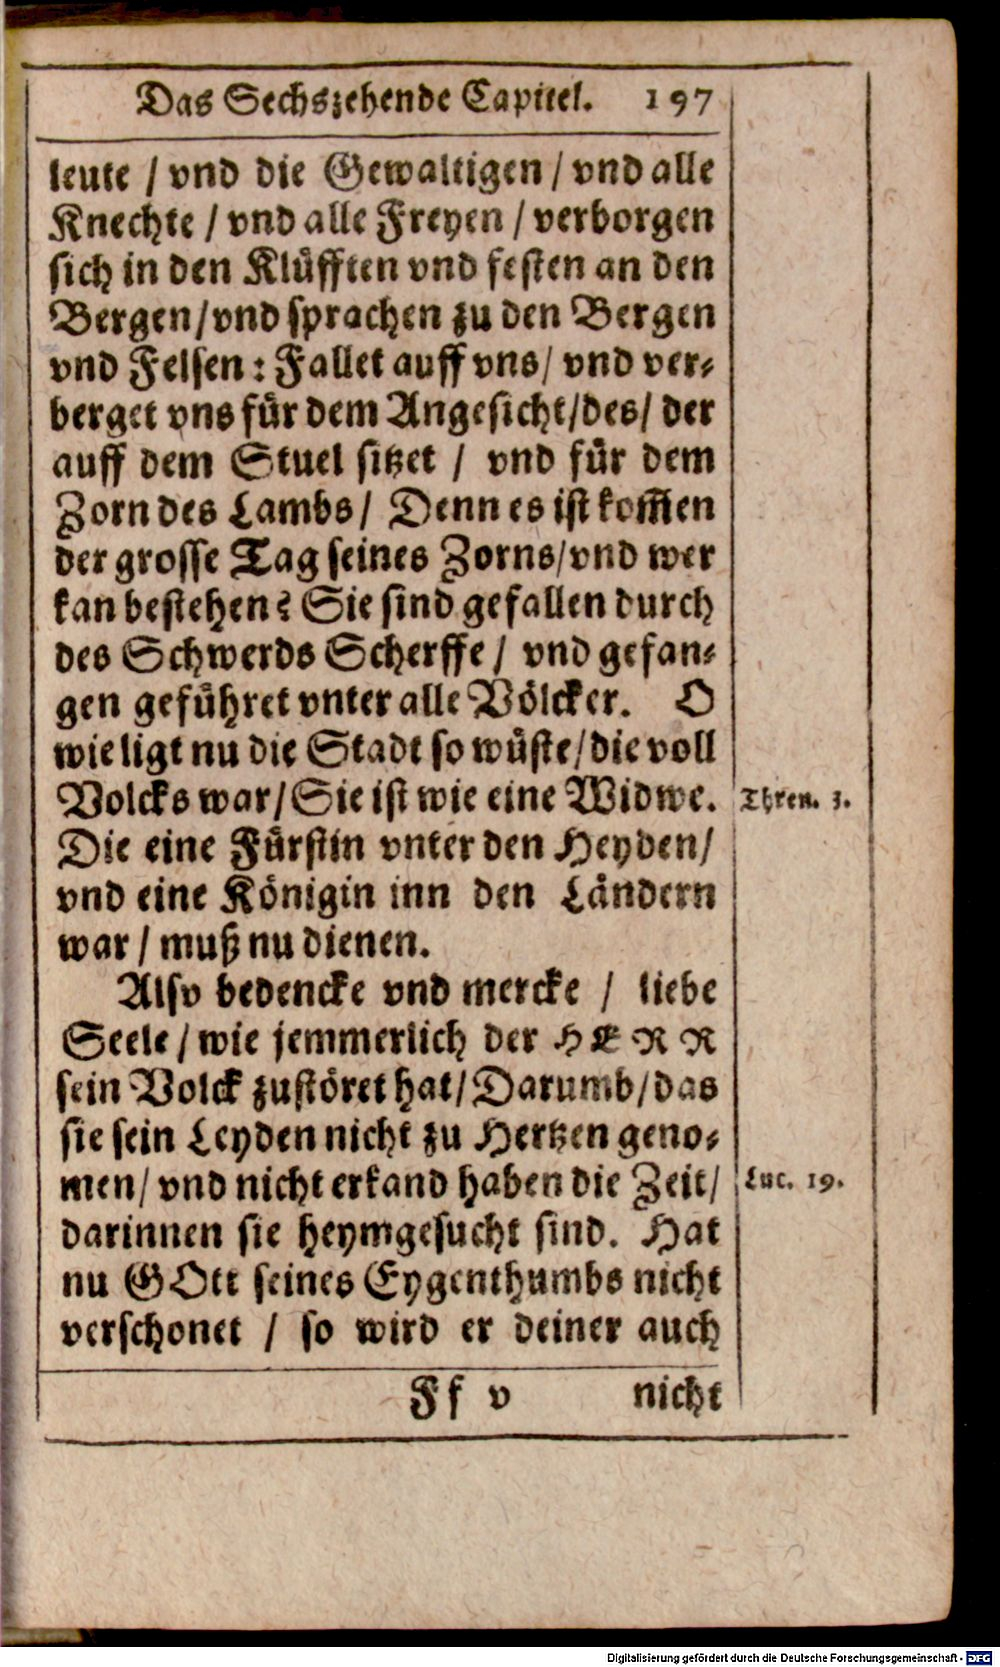 Das Sechszehende Capitel. 197
leute / vnd die Gewaltigen / vnd alle
Knechte / vnd alle Freyen / verborgen
sich in den Klüfften vnd festen an den
Bergen / vnd sprachen zu den Bergen
vnd Felsen : Fallet auff vns / vnd ver-
berget vns für dem Angesicht / des / der
auff dem Stuel sitzet / vnd für dem
Zorn des Lambs / Denn es ist kom̃en
der grosse Tag seines Zorns / vnd wer
kan bestehen? Sie sind gefallen durch
des Schwerds Scherffe / vnd gefan-
gen geführet vnter alle Völcker. O
wie ligt nu die Stadt so wüste / die voll
Volcks war / Sie ist wie eine Widwe.
Thren. 3.
Die eine Fürstin vnter den Heyden /
vnd eine Königin inn den Ländern
war / muß nu dienen.
Also bedencke vnd mercke / liebe
Seele / wie jemmerlich der HERR
sein Volck zustöret hat / Darumb / das
sie sein Leyden nicht zu Hertzen geno-
men / vnd nicht erkand haben die Zeit /
Luc. 19.
darinnen sie heymgesucht sind. Hat
nu GOtt seines Eygenthumbs nicht
verschonet / so wird er deiner auch
Ff v nicht
Digitalisierung gefördert durch die Deutsche Forschungsgemeinschaft - DFG